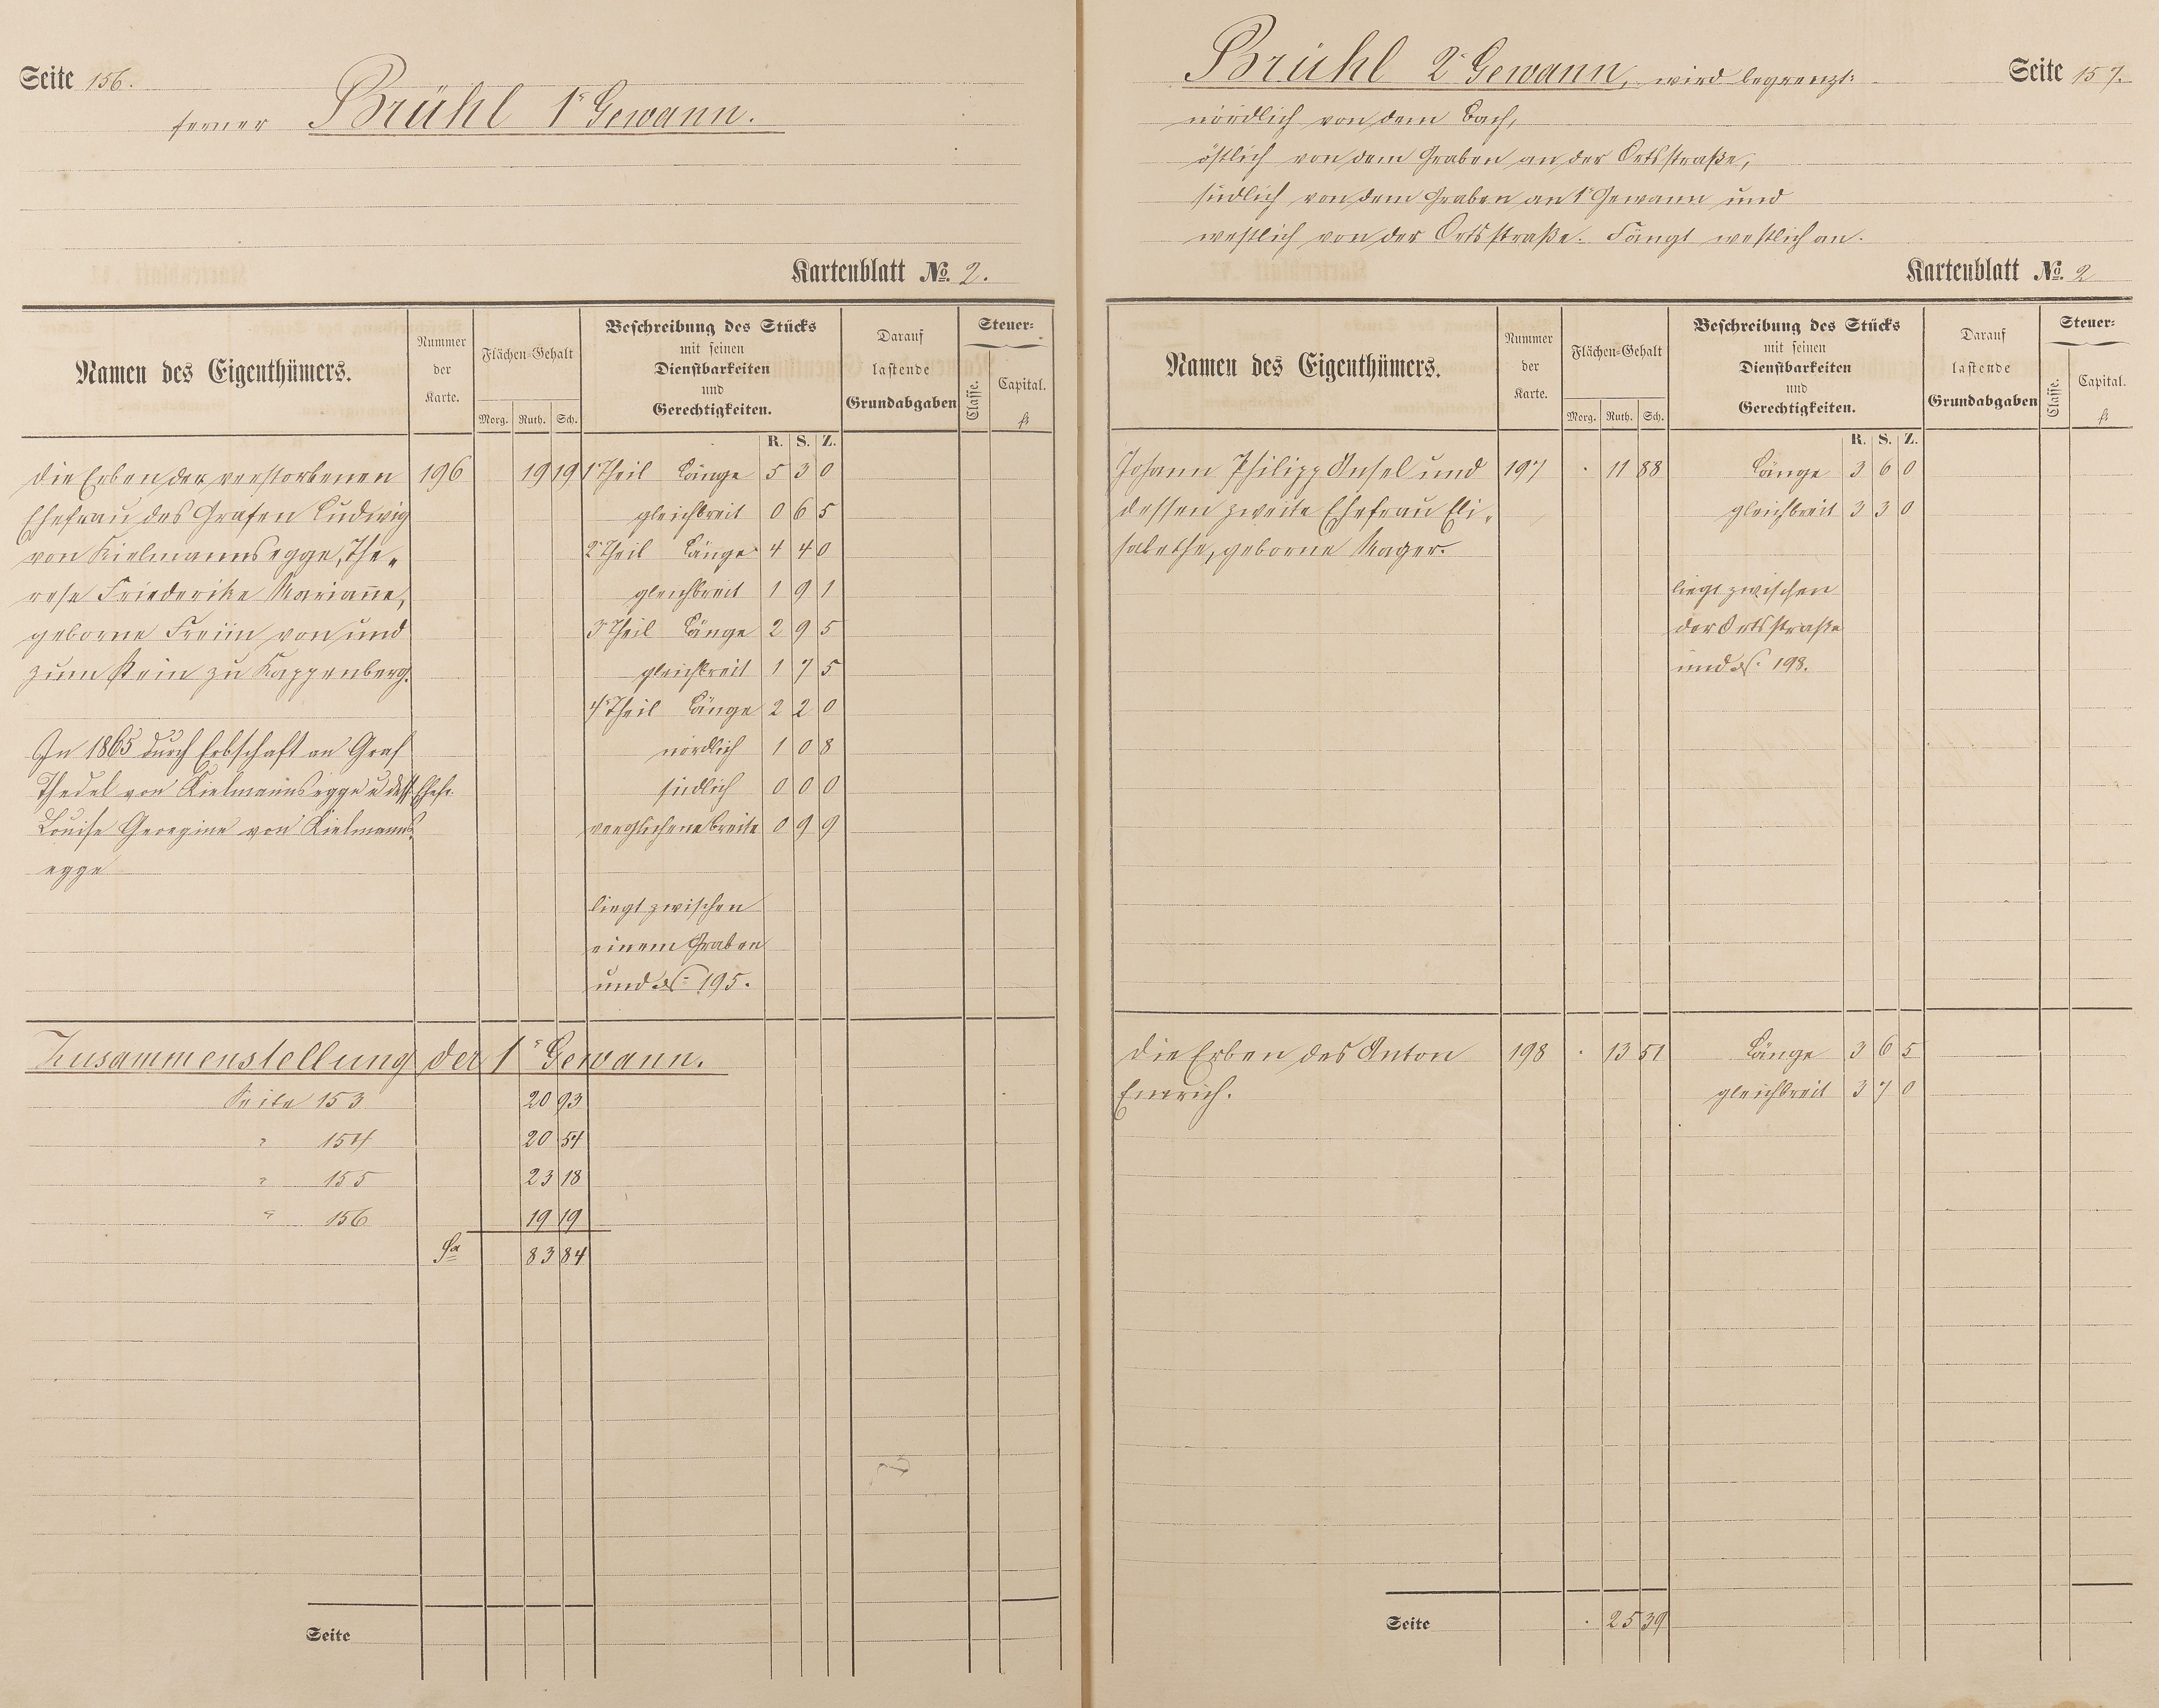 Seite 156.
ferner Brühl 1r Gewann.
Kartenblatt No. 2.
Namen des Eigenthümers.
Nummer
der
Karte.
Flächen=Gehalt
Morg. Ruth. Sch.
Beschreibung des Stücks
mit seinen
Dienstbarkeiten
und
Gerechtigkeiten.
R. S. Z.
Darauf
lastende
Grundabgaben
Steuer=
Classe.
Capital.
fl
die Erben der verstorbenen 196 19 19 1r Theil Länge 5 3 0
Ehefrau des Grafen Ludwig gleichbreit 0 6 5
von Kielmannsegge, The= 2r Theil Länge 4 4 0
rese Friederike Marianne, gleichbreit 1 9 1
geborne Freiin von und 3r Theil Länge 2 9 5
zum Stein zu Kappenberg. gleichbreit 1 7 5
4r Theil Länge 2 2 0
In 1865 durch Erbschaft an Graf nördlich 1 0 8
Thedel von Kielmannsegge u dess Ehefr. südlich 0 0 0
Louise Georgine von Kielmanns= verglichene Breite 0 9 9
egge
liegt zwischen
einem Graben
und No 195.
Zusammenstellung der 1r Gewann.
Seite 153 20 93
" 154 20 54
" 155 23 18
" 156 19 19
Sa 83 84
Seite
Brühl 2r Gewann, wird begrenzt: Seite 157.
nördlich von dem Bach,
östlich von dem Graben an der Ortsstraße,
südlich von dem Graben an 1r Gewann und
westlich von der Ortsstraße. Fängt westlich an.
Kartenblatt No. 2
Namen des Eigenthümers.
Nummer
der
Karte.
Flächen=Gehalt
Morg. Ruth. Sch.
Beschreibung des Stücks
mit seinen
Dienstbarkeiten
und
Gerechtigkeiten.
R. S. Z.
Darauf
lastende
Grundabgaben
Steuer=
Classe.
Capital.
fl
Johann Philipp Ansel und 197 . 11 88 Länge 3 6 0
dessen zweite Ehefrau Eli= gleichbreit 3 3 0
sabethe, geborne Mager.
liegt zwischen
der Ortsstraße
und No 198.
die Erben des Anton 198 . 13 51 Länge 3 6 5
Emrich. gleichbreit 3 7 0
Seite . 25 39